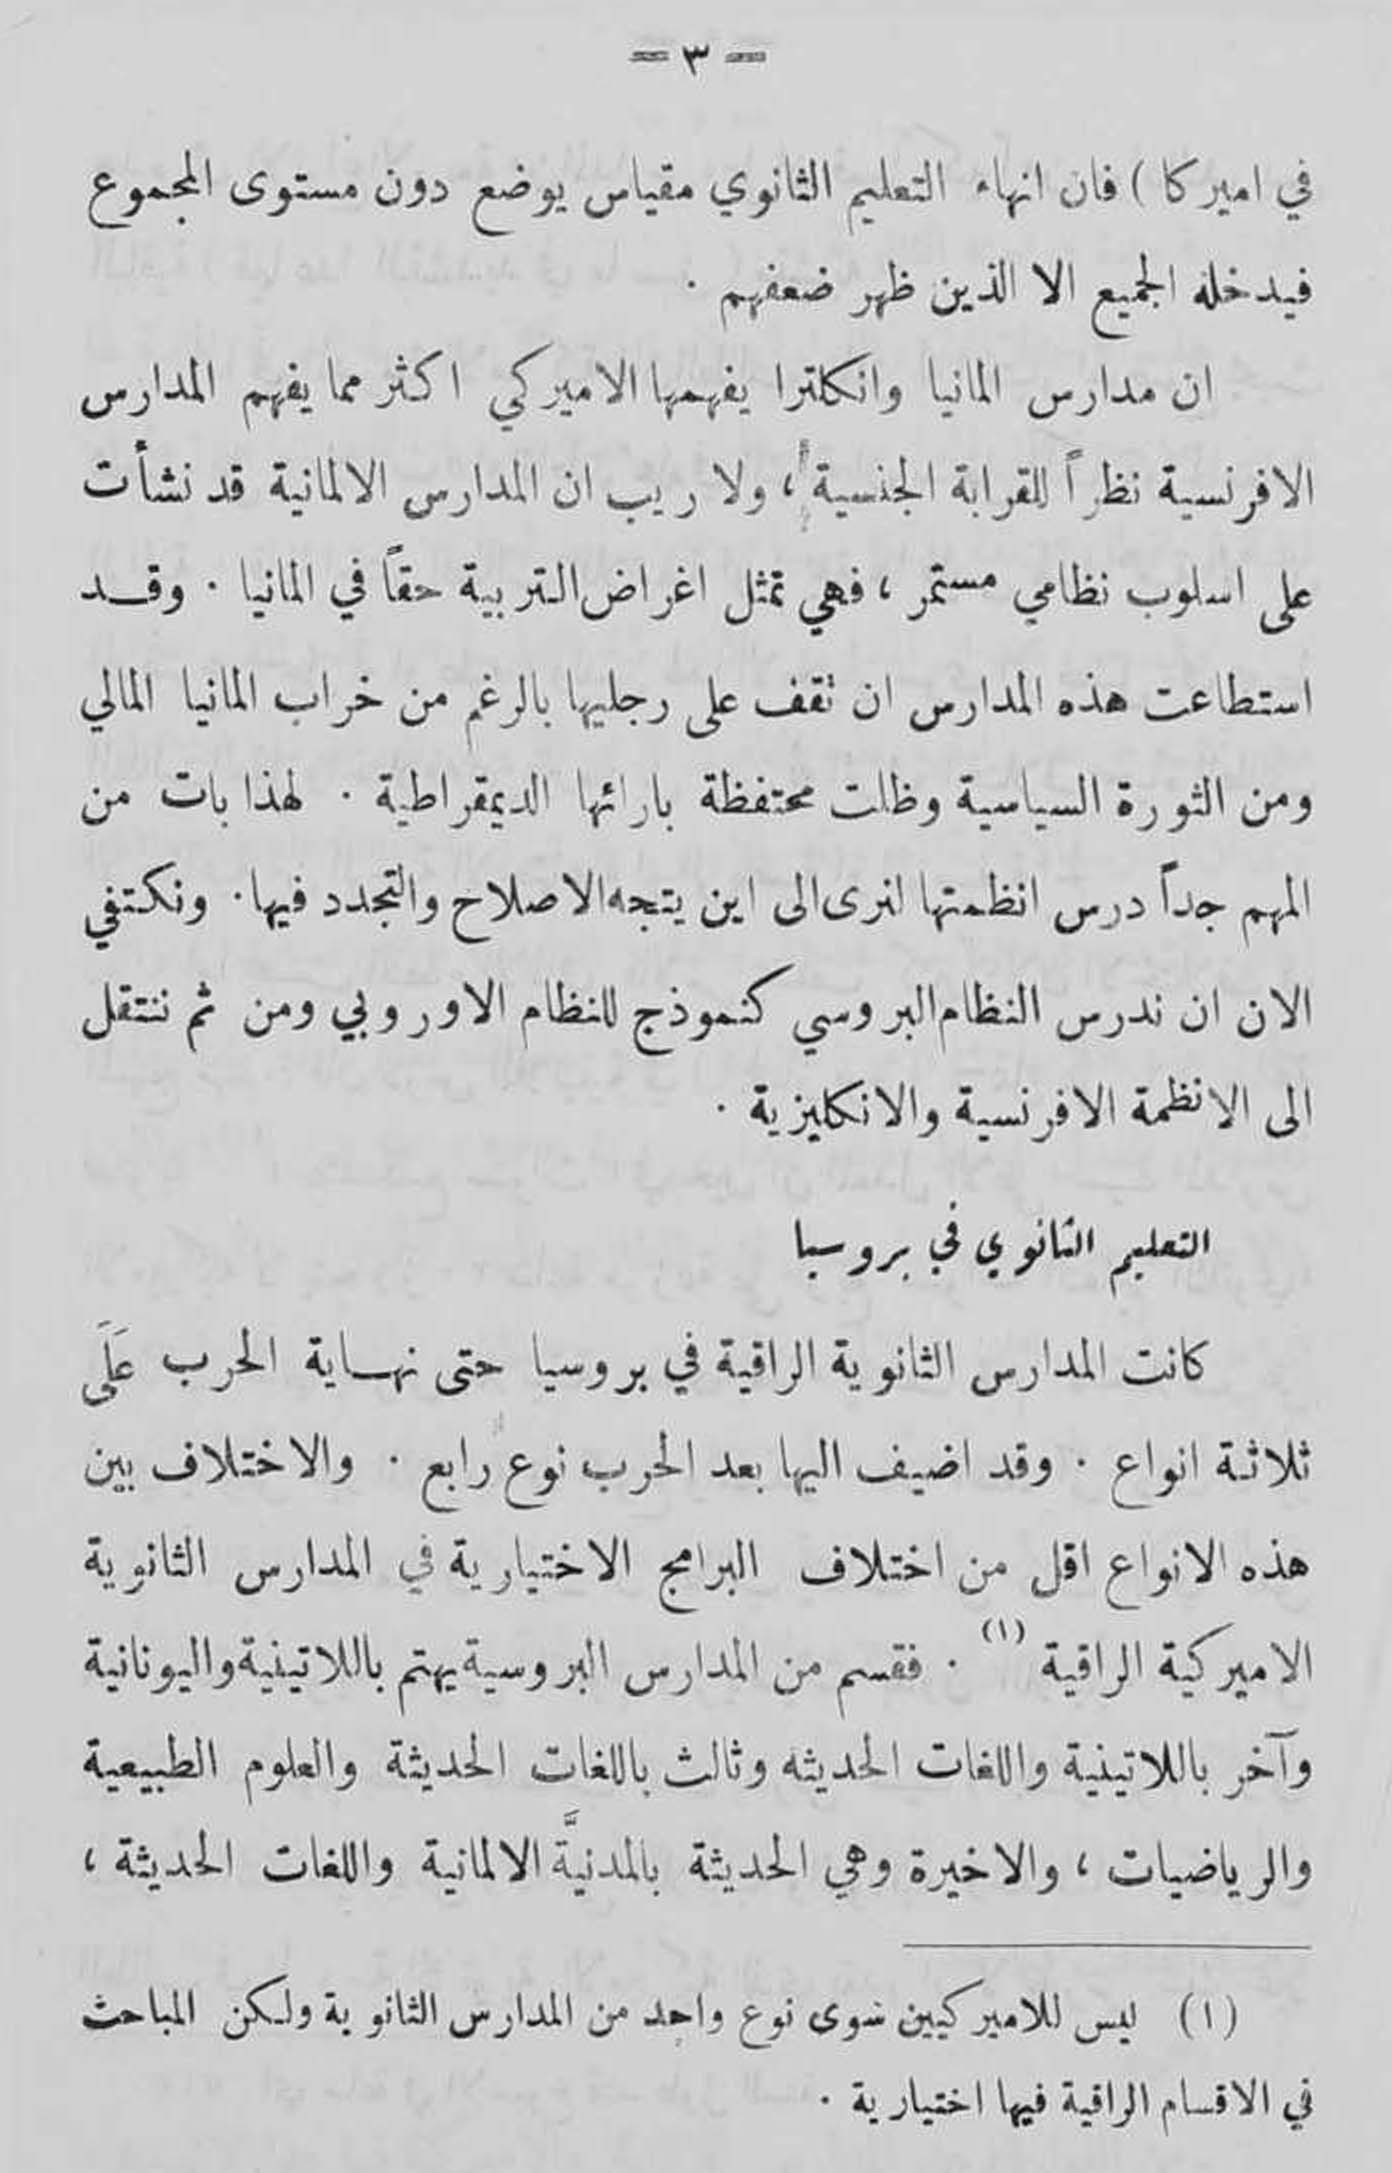 = ٣ =
في اميركا ) فان انهاء التعليم الثانوي مقياس يوضع دون مستوى المجموع
فيدخله الجميع الا الذين ظهر ضعفهم .
ان مدارس المانيا وانكلترا يفهمها الاميركي اكثر مما يفهم المدارس
الافرنسية نظراً للقرابة الجنسية ، ولا ريب ان المدارس الالمانية قد نشأت
على اسلوب نظامي مستمر ، فهي تمثل اغراض التربية حقاً في المانيا . وقد
استطاعت هذه المدارس ان تقف على رجليها بالرغم من خراب المانيا المالي
ومن الثورة السياسية وظلت محتفظة بارائها الديمقراطية . لهذا بات من
المهم جداً درس انظمتها لنرى الى اين يتجه الاصلاح والتجدد فيها . ونكتفي
الان ان ندرس النظام البروسي كنموذج للنظام الاوروبي ومن ثم ننتقل
الى الانظمة الافرنسية والانكليزية .
التعليم الثانوي في بروسيا
كانت المدارس الثانوية الراقية في بروسيا حتى نهاية الحرب عَلَى
ثلاثة انواع . وقد اضيف اليها بعد الحرب نوع رابع . والاختلاف بين
هذه الانواع اقل من اختلاف البرامج الاختيارية في المدارس الثانوية
الاميركية الراقية (١) . فقسم من المدارس البروسية يهتم باللاتينية واليونانية
وآخر باللاتينية واللغات الحديثه وثالث باللغات الحديثة والعلوم الطبيعية
والرياضيات ، والاخيرة وهي الحديثة بالمدنيَّة الالمانية واللغات الحديثة ،
(١) ليس للاميركيين سوى نوع واحد من المدارس الثانوية ولكن المباحث
في الاقسام الراقية فيها اختيارية .